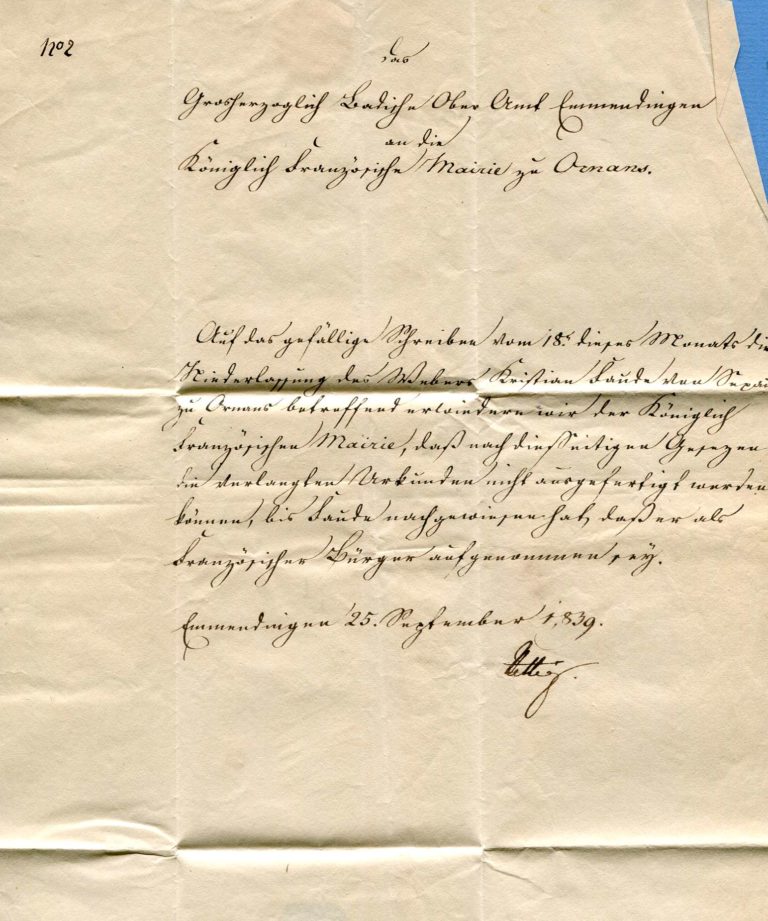 No 2
Das
Grosherzoglich Badische Ober Amt Emmendingen
an die
Königlich Französische Mairie zu Ornans.
Auf das gefällige Schreiben vom 18t. dieses Monats die
Niederlassung des Webers Kristian Faude von
zu Ornans betreffend erwiedern wir der Königlich
Französischen Mairie, daß nach diesseitigen Gesezen
die verlangten Urkunden nicht ausgefertigt werden
können, bis Faude nachgewiesen hat, daß er als
Französischer Bürger aufgenommen sey.
Emmendingen 25. September 1839.